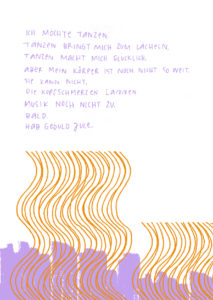 ICH MÖCHTE TANZEN.
TANZEN BRINGT MICH ZUM LÄCHELN.
TANZEN MACHT MICH GLÜCKLICH.
ABER MEIN KÖRPER IST NOCH NICHT SO WEIT.
SIE KANN NICHT.
DIE KOPFSCHMERZEN LASSEN
MUSIK NOCH NICHT ZU.
BALD.
HAB GEDULD JULE.